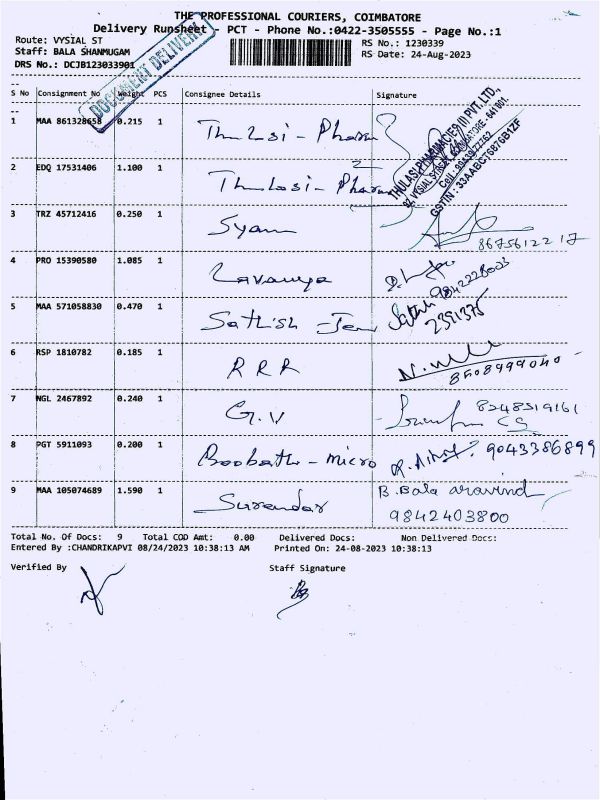 THE PROFESSIONAL COURIERS, COIMBATORE
Delivery Runsheet - PCT - Phone No.:0422-3505555 - Page No.:1
Route: VYSIAL ST
RS No.: 1230339
Staff: BALA SHANMUGAM
RS Date: 24-Aug-2023
DRS No.: DCJB123033901
DOCUMENT DELIVERY
S No Consignment No Weight PCS Consignee Details Signature
1 MAA 861328658 0.215 1 Thulasi - Pharma
THULASI PHARMACIES (I) PVT. LTD.,
VYSIAL STREET, COIMBATORE - 641001.
GSTIN : 33AABCT6876B1ZF
2 EDQ 17531406 1.100 1 Thulasi - Pharma
3 TRZ 45712416 0.250 1 Syam
4 PRO 15390580 1.085 1 Lavanya 9842228003
5 MAA 571058830 0.470 1 Sathish - Jew Sathi
2391375
6 RSP 1810782 0.185 1 RRR
8508999040
7 NGL 2467892 0.240 1 G.V 8248519161
8 PGT 5911093 0.200 1 Boobathi - micro 9043386899
9 MAA 105074689 1.590 1 Surendar B. Bala aravind
9842403800
Total No. Of Docs: 9 Total COD Amt: 0.00 Delivered Docs: Non Delivered Docs:
Entered By :CHANDRIKAPVI 08/24/2023 10:38:13 AM Printed On: 24-08-2023 10:38:13
Verified By Staff Signature